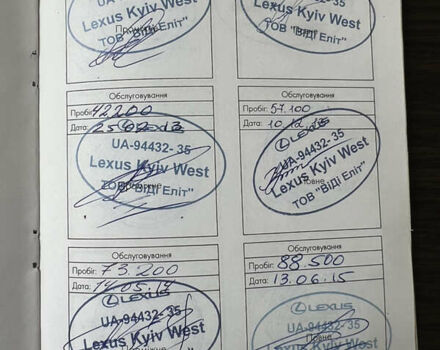 UA-94432-35
Lexus Kyiv West
ТОВ "ВіДі Еліт"
Lexus Kyiv West
ТОВ "ВіДі Еліт"
Обслуговування
Пробіг: 42200
Дата:
UA-94432-35
Lexus Kyiv West
ТОВ "ВіДі Еліт"
Обслуговування
Пробіг: 57.100
Дата: 10.12.13
LEXUS
UA-94432-35
Lexus Kyiv West
Повне
ТОВ "ВіДі Еліт"
Обслуговування
Пробіг: 73.200
Дата: 14.05.14
LEXUS
UA-94432-35
Lexus Kyiv West
Обслуговування
Пробіг: 88.500
Дата: 13.06.15
LEXUS
UA-94432-35
Повне
Lexus Kyiv West